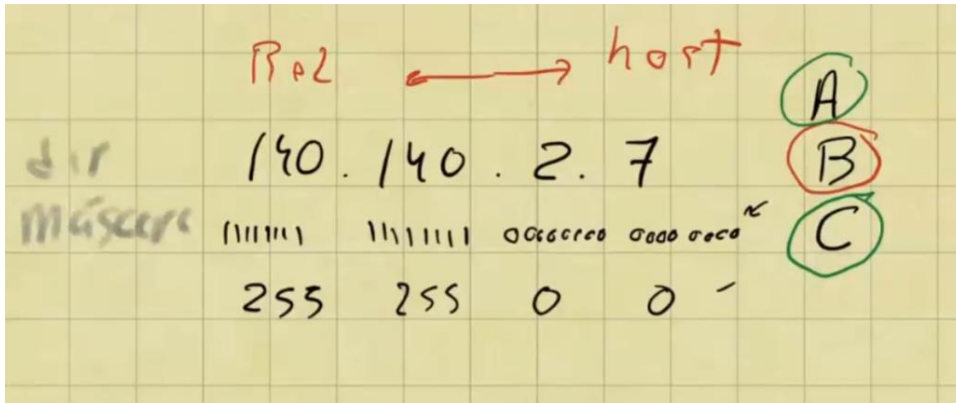 Red ↔ host
A
dir 140.140.2.7 B
máscara 11111111 11111111 00000000 00000000 C
255 255 0 0